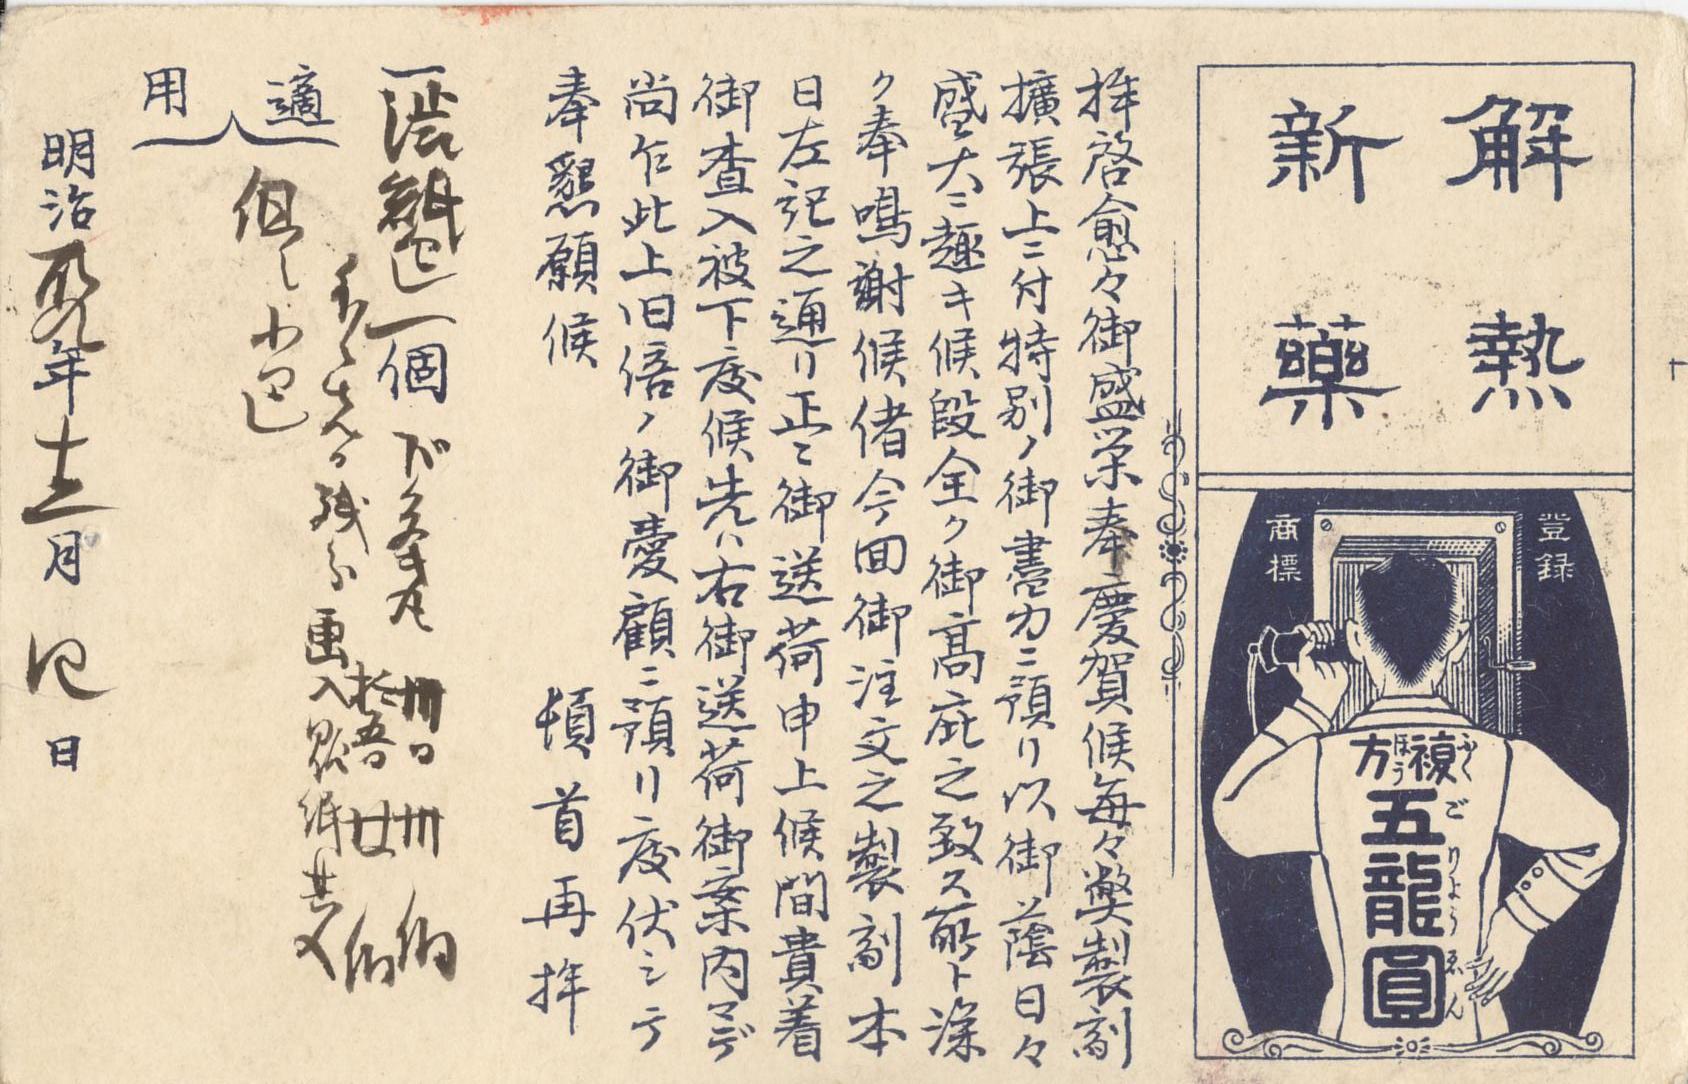 解熱
新藥
登録
商標
複方
ふく
ほう
五龍圓
ごりようゑん
拝啓愈々御盛栄奉慶賀候毎々弊製剤
擴張上ニ付特別ノ御盡力ニ預リ以御蔭日々
盛大ニ趣キ候段全ク御高庇之致ス所ト深
ク奉鳴謝候偖今回御注文之製剤本
日左記之通リ正ニ御送荷申上候間貴着
御査入被下度候先ハ右御送荷御案内マデ
尚乍此上旧倍ノ御愛顧ニ預リ度伏シテ
奉懇願候
頓首再拝
一渋紙包一個
卅口卅
拾五口廿
画入
紙共
適用
但し小包
明治
年十二月
日